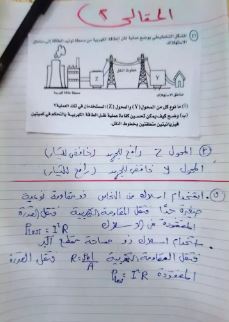 المقالى ٢
الشكل التخطيطي يوضح عملية نقل الطاقة الكهربية من محطة توليد الطاقة إلى مناطق
الاستهلاك.
خطوط النقل
Y
Z
مناطق الاستهلاك
محطة طاقة كهربية
(أ) ما نوع كل من المحول (Y) والمحول (Z) المستخدمان في تلك العملية؟
(ب) وضح كيف يمكن تحسين كفاءة عملية نقل الطاقة الكهربية والتحكم في كميتين
فيزيائيتين متعلقتين بخطوط النقل.
المحول Z رافع للجهد (خافض للتيار)
المحول Y خافض للجهد (رافع للتيار)
استخدام اسلاك من النحاس ذو مقاومة نوعية
صغيرة جدًا فتقل المقاومة الكهربية فتقل القدرة
المفقودة من الاسلاك P = I²R
استخدام اسلاك ذو مساحة مقطع أكبر
فتقل المقاومة الكهربية R = فتقل القدرة
المفقودة P = I²R